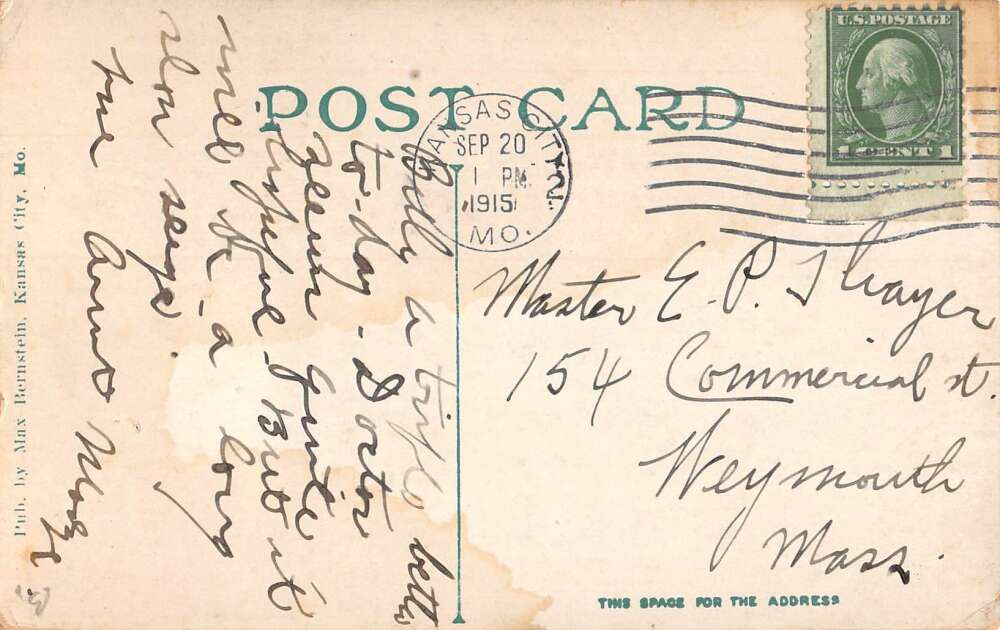 POST CARD
U.S. POSTAGE
1 CENT 1
KANSAS CITY 2.
SEP 20
1 PM
1915
MO.
Billy a trifle better
to-day - Doctor
seems quite
hopeful - But it
will be - a long
slow seige
Aunt
Master E. P. Thayer
154 Commercial st.
Weymouth
Mass.
THIS SPACE FOR THE ADDRESS
Pub. by Max Bernstein, Kansas City, Mo.